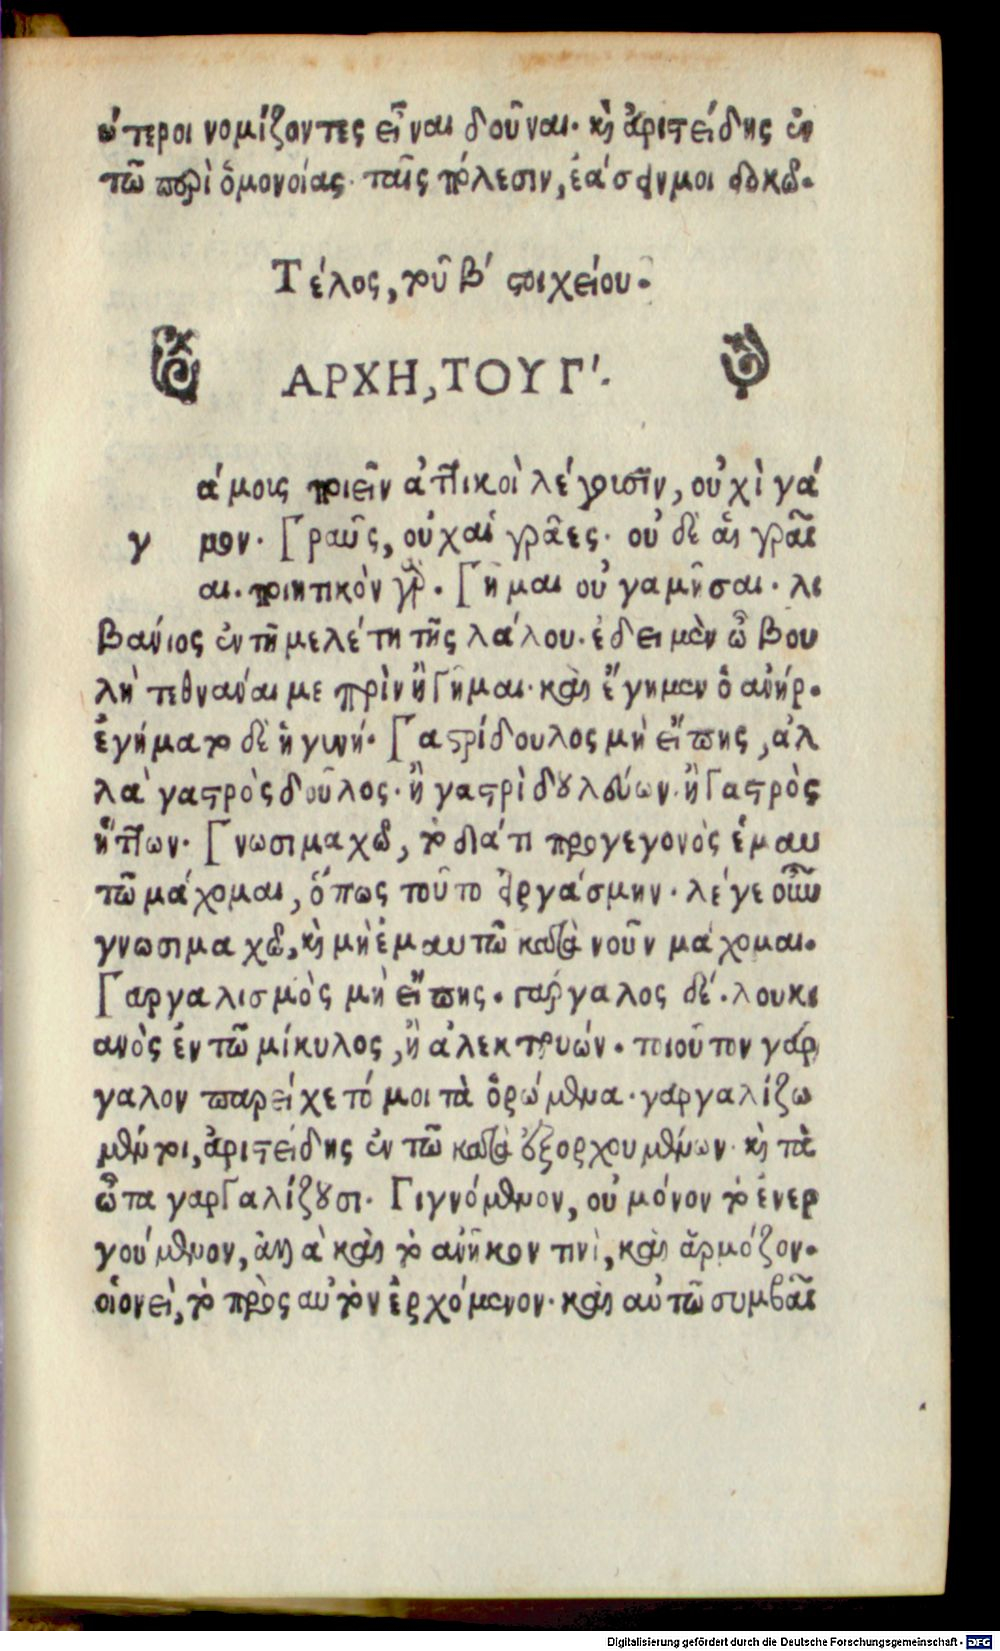 ώτεροι νομίζοντες εἶναι δοῦναι. καὶ ἀριστείδης ἐν
τῶ περὶ ὁμονοίας ταῖς πόλεσιν, ἐάσαιμι δοκῶ.
Τέλος, τοῦ β΄ στοιχείου.
ΑΡΧΗ, ΤΟΥ Γ΄.
άμοις ποιεῖν ἀττικοὶ λέγουσιν, οὐχὶ γά
γ μον. Γραῦς, οὐχαὶ γρᾶες. οὐ δὲ αἱ γρᾶϊ
αι. ποιητικὸν γὰρ. Γῆμαι οὐ γαμῆσαι. λι
βανίος ἐν τῆ μελέτη τῆς λάλου. ἐδει μὲν ὦ βου
λὴ τεθνάναι με πρὶν ἢ γῆμαι. καὶ ἔγημεν ὁ ανήρ.
ἐγήματο δὲ ἡ γυνή. Γαστρίδουλος μὴ εἴπης, ἀλ
λὰ γαστρὸς δοῦλος. ἢ γαστρὶ δουλεύων. ἢ γαστρὸς
ἥττων. Γνωσιμαχῶ, τὸ διάτι προγεγονὸς ἐμαυ
τῶ μάχομαι, ὅπως τοῦτο εἰργάσμην. λέγε οὖν
γνωσιμαχῶ, καὶ μὴ ἐμαυτῶ κατὰ νοῦν μάχομαι.
Γαργαλισμὸς μὴ εἴπης. γάργαλος δέ. λουκι
ανὸς ἐν τῶ μίκυλος, ἢ ἀλεκτρυών. τοιοῦτον γάρ
γαλον παρείχετό μοι τὰ ὁρώμενα. γαργαλίζω
μέντοι, ἀριστείδης ἐν τῶ κατὰ ἐξορχουμένων. καὶ τὰ
ὦτα γαργαλίζουσι. Γιγνόμενον, οὐ μόνον τὸ ἐνερ
γούμενον, ἀλλὰ καὶ τὸ ανῆκον τινὶ, καὶ ἁρμόζον.
οἱονεὶ, τὸ πρὸς αὐτὸν ἐρχόμενον. καὶ αὐτῶ συμβαῖ